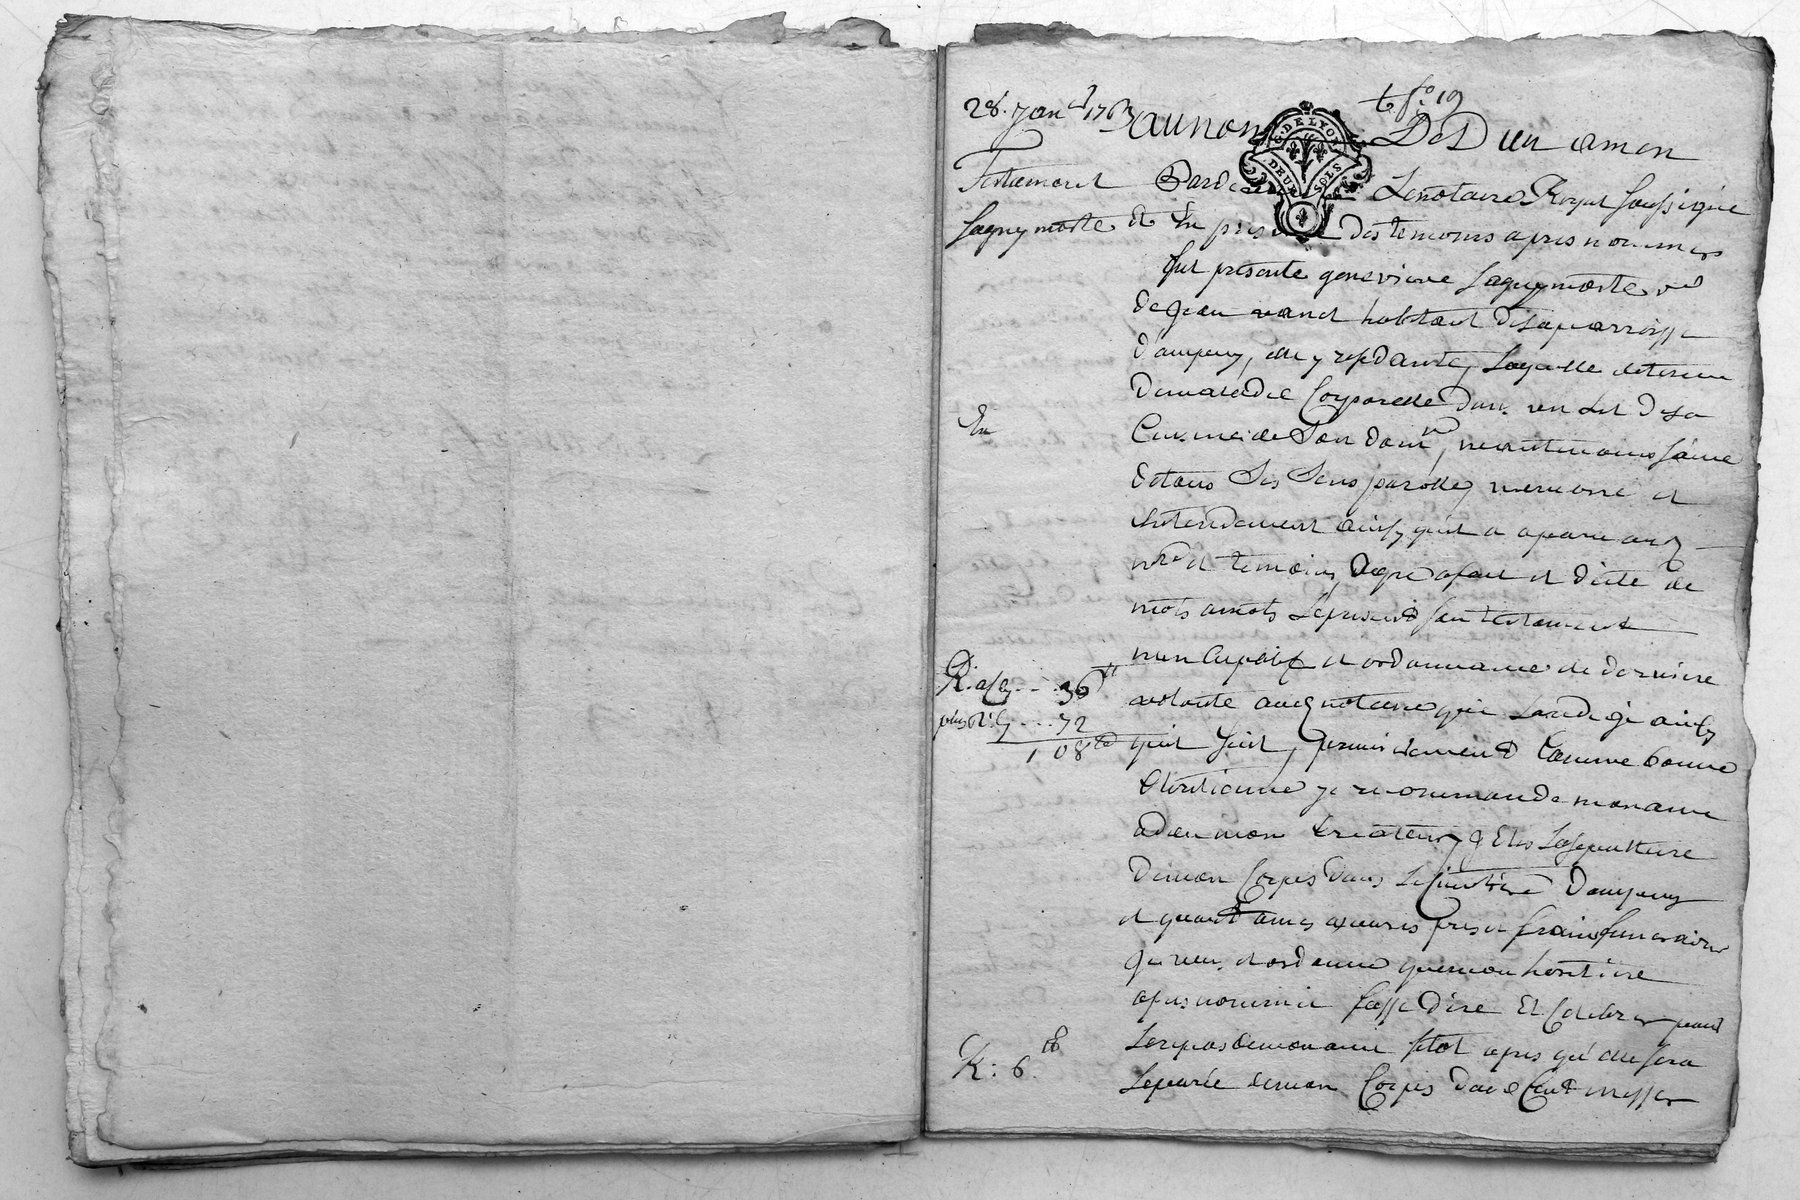 28. Janr 1763
t. f.o 19
Au nom De Dieu amen
Testament
Laguymoste
Pardevant Le notaire Royal soussigné
Et En presence des temoins apres nommes
fut presente genevieve Laguymoste vve
de Jean habitant de la parroisse
d'ampuy, elle y residante, Laquelle detenue
De maladie Corporelle dans un Lit de la
En
Cuisine de son domle, neantmoins saine
de tous Ses Sens parolle, memoire et
Entendement ainsy quil a aparu aud.
nre et temoins, De gré a fait et dicté de
mots amots Le present son testament
nuncupatif et ordonnance de derniere
volonté aud notaire qui La redigé ainsy
R. 36 tt
plus 72
108 tt
quil suit, premierement Comme bonne
Chretienne je recommande mon ame
a dieu mon Createur, j Elis La sepulture
De mon Corps dans le Cimetiere D'ampuy
et quant ames œuvres pies et frais funeraires
Je veux et ordonne que mon heritiere
apres nommée fasse dire Et Celebrer pour
Le repos de mon ame sitot apres qu'elle sera
K: 6 tt
separée de mon Corps messes
G. DE LYON
DEUX SOLS